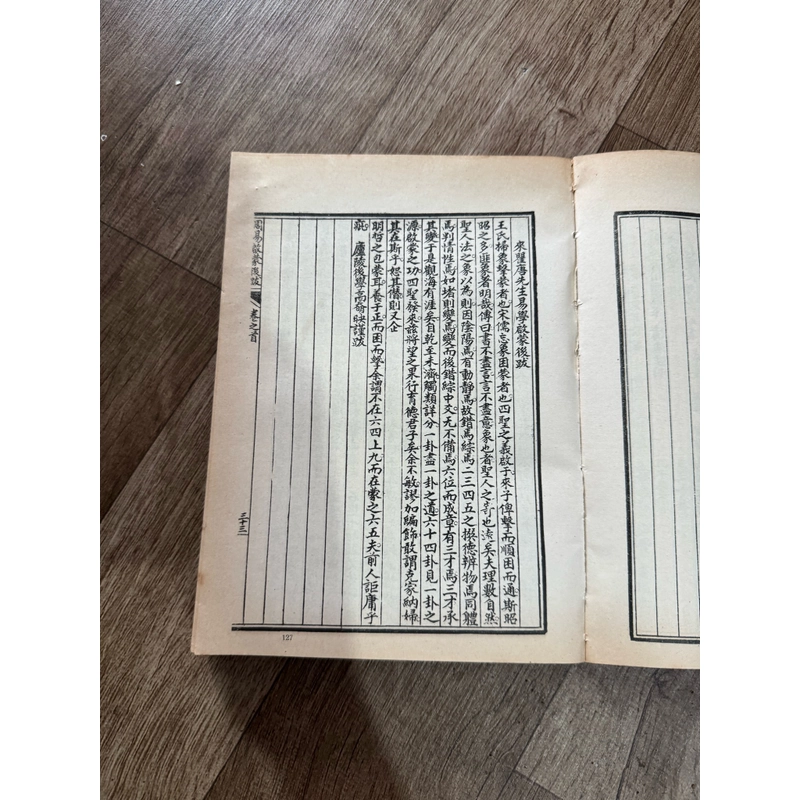 來瞿唐先生易學啟蒙後跋
王氏掃象擊蒙者也宋儒忘象困蒙者也四聖之義啟于來子俾擊而順困而通斯昭
昭之多匪象著明哉傳曰書不盡言言不盡意象也者聖人之奇也流矣夫理數自然
聖人法之象以為則因陰陽焉有動靜焉故錯焉綜焉二三四五之撰德辨物焉同體
焉判情性焉如堵則變焉變而後錯綜中爻无不備焉六位而成章有三才焉三才承
其變于是觀海有涯矣自乾至未濟觸類詳分一卦盡一卦之蘊六十四卦見一卦之
源啟蒙之功四聖發來誰將望之果行育德君子矣余不敏謬加編飾敢謂克家納婦
其在斯乎恕其僭則又企
明哲之包蒙耳養于正而困而擊余謂不在六四上九而在蒙之六五夫前人詎庸乎
疵 廬陵後學高奣映謹跋
周易啟蒙後跋 卷之首
三十三
127